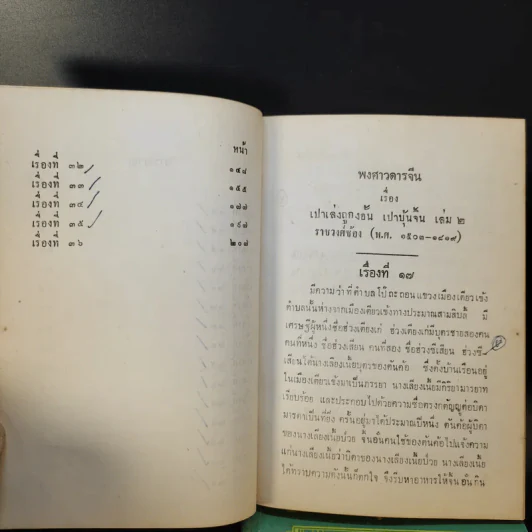 หน้า
เรื่องที่ ๓๒ ๑๔๘
เรื่องที่ ๓๓ ๑๕๕
เรื่องที่ ๓๔ ๑๗๗
เรื่องที่ ๓๕ ๑๙๗
เรื่องที่ ๓๖ ๒๐๗
พงศาวดารจีน
เรื่อง
เปาเล่งถูกงอั้น เปาบุ้นจิ้น เล่ม ๒
ราชวงศ์ซ้อง (พ.ศ. ๑๕๐๓-๑๘๑๙)
เรื่องที่ ๑๗
มีความว่าที่ตำบลโป๊ถะถอนแขวงเมืองเตียวเซ้ง
ตำบลนั้นห่างจากเมืองเตียวเซ้งทางประมาณสามสิบลี้ มี
เศรษฐีผู้หนึ่งชื่อฮ่วงเตียงเก่ ฮ่วงเตียงเก่มีบุตรชายสองคน
คนที่หนึ่ง ชื่อฮ่วงเสียน คนที่สอง ชื่อฮ่วงซีเสียน ฮ่วงซี
เสียนได้นางเลียงเนี้ยบุตรของตันต๋อ ซึ่งตั้งบ้านเรือนอยู่
ในเมืองเตียวเซ้งมาเป็นภรรยา นางเลียงเนี้ยมีกิริยามารยาท
เรียบร้อย และประกอบไปด้วยความซื่อตรงกตัญญูต่อบิดา
มารดาเป็นที่ยิ่ง ครั้นอยู่มาได้ประมาณปีหนึ่ง ตันต๋อผู้บิดา
ของนางเลียงเนี้ยป่วย จิ้นอันคนใช้ของตันต๋อไปแจ้งความ
แก่นางเลียงเนี้ยว่าบิดาของนางเลียงเนี้ยป่วย นางเลียงเนี้ย
ได้ทราบความดังนั้นก็ตกใจ จึงรีบหาอาหารให้จิ้นอันกิน